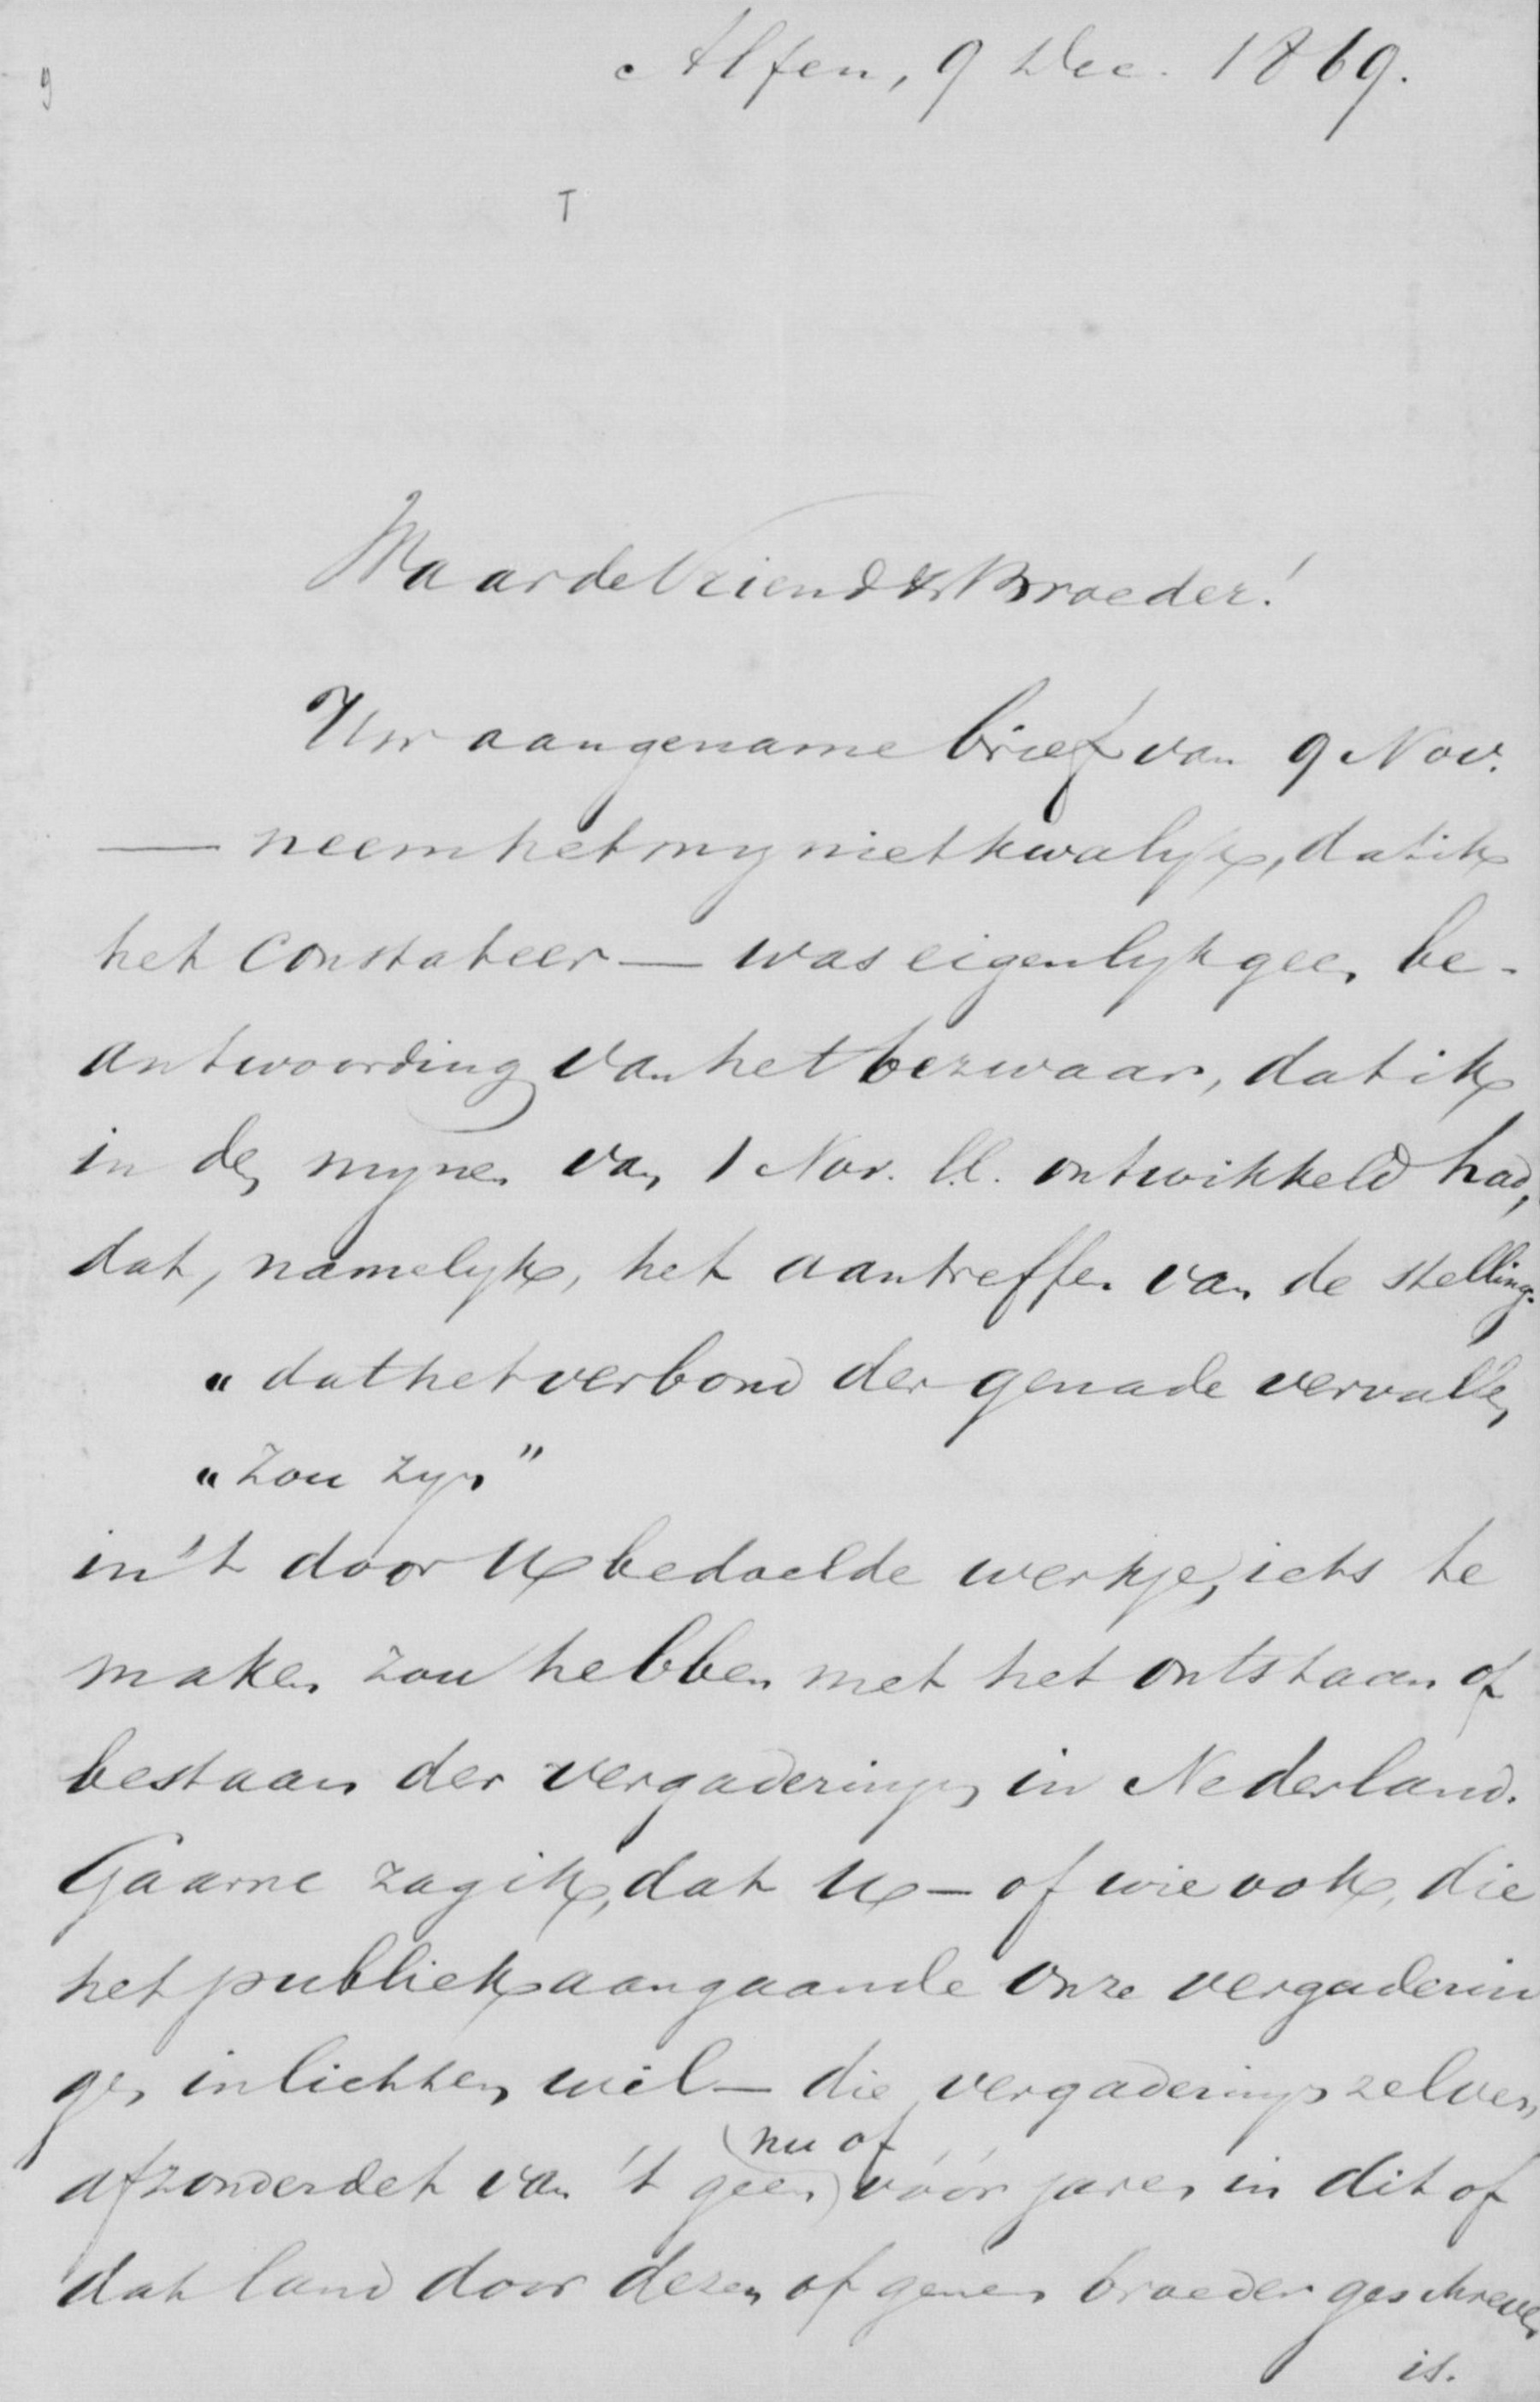 9
Alfen, 9 Dec. 1869.
T
Waarde Vriend & Broeder!
Uw aangename brief van 9 Nov.
— neem het my niet kwalyk, dat ik
het constateer — was eigenlyk geen be-
antwoording van het bezwaar, dat ik
in den mynen van 1 Nov. l.l. ontwikkeld had,
dat, namelyk, het aantreffen van de stelling:
„dat het verbond der genade vervallen
„zou zyn”
in 't door U bedoelde werkje, iets te
maken zou hebben met het ontstaan of
bestaan der vergaderingen in Nederland.
Gaarne zag ik, dat U — of wie ook, die
het publiek aangaande onze vergaderin
gen inlichten wil — die vergaderingen zelven,
nu of
afzonderdet van 't geen vóór jaren in dit of
dat land door dezen of genen broeder geschreven
is.